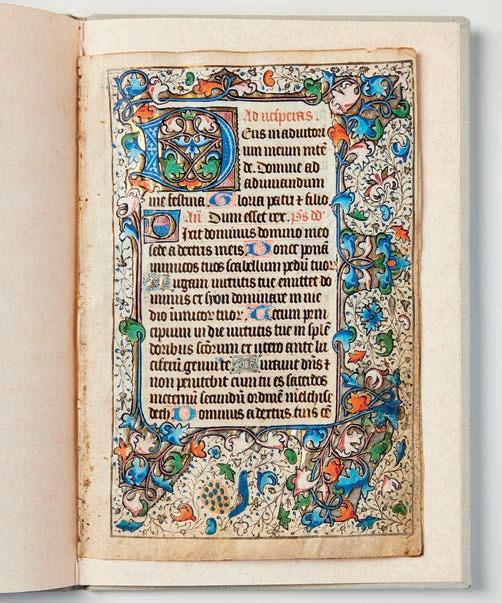 Ad uesperas.
Deus in adiutori
um meum inte
de. Domine ad
adiuuandum
me festina Gloria patri & filio
Añ Dum esset rex. p̄s dd'
Dixit dominus domino meo
sede a dextris meis Donec ponā
inimicos tuos scabellum pedū tuoꝝ
Uirgam uirtutis tue emittet do
minus ex syon dominare in me
dio inimicoꝝ tuoꝝ Tecum prin
cipium in die uirtutis tue in splē
doribus sc̄orum ex utero ante lu
ciferū genui te Iurauit dn̄s &
non penitebit eum tu es sacerdos
in eternū secundū ordinē melchise
dech Dominus a dextris tuis cō